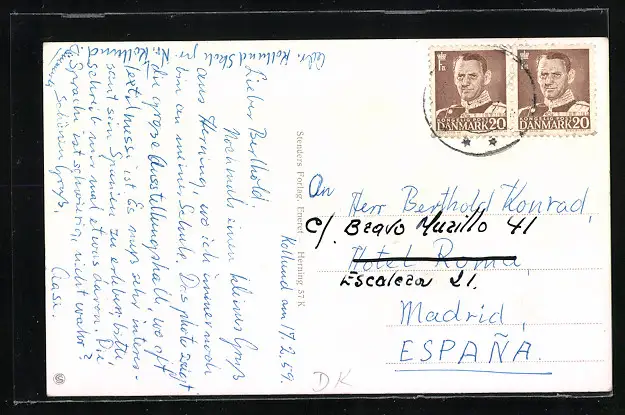 Adr. Kollund Skole pr. Kr. Kollund
Kollund am 17.2.59.
Lieber Berthold,
Nochmals einen kleinen Gruß
aus Herning, wo ich immer noch
bin an meiner Schule. Das photo zeigt
die grosse Ausstellungshalle, wo oft
textilmesse ist. Es muss sehr interes-
sant sein Spanien zu erleben, bitte,
schreib mir mal etwas davon. Die
Sprache ist schwierig, nicht wahr?
schönen Gruß,
Stenders Forlag, Eneret
Herning 37 K
DANMARK 20
DANMARK 20
An
Herr Berthold Konrad,
C/. Bravo Murillo 41
Hotel Roma
Escalera 21.
Madrid,
ESPAÑA.
DK